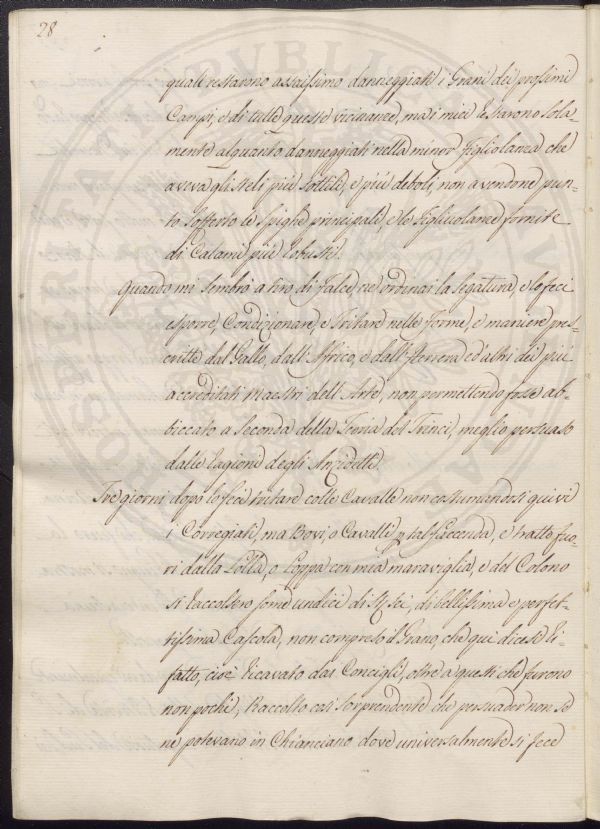 28
quali restarono assaissimo danneggiati i Grani dei prossimi
Campi, e di tutte queste vicinanze, ma i miei restarono sola-
mente alquanto danneggiati nella minor figliolanza che
aveva gli steli più sottili, e più deboli, non avendone pun-
to sofferto le spighe principali, e le figliuolanze fornite
di Calami più robusti.
Quando mi sembrò a tiro di falce, ne ordinai la segatura, e lo feci
esporre, Condizionare, e Tritare nelle forme, e maniere pres-
critte dal Gallo, dall'Affrico, e dall'Herrera ed altri dei più
accreditati Maestri dell'Arte, non permettendo fosse ab-
biccato a seconda della Teoria del Trinci, meglio persuaso
dalle ragioni degli Anzidetti.
Tre giorni dopo lo feci tritare colle Cavalle non costumandosi quivi
i Corregiati, ma Bovi, o Cavalli p tal faccenda, e tratto fuo-
ri dalla Lolla, o Loppa con mia maraviglia, e del Colono
si raccolsero some undici di di bellissima e perfet-
tissima Cascola, non compreso il Grano, che qui dicesi ri-
fatto, cioè ricavato dai Concigli, oltre a questi che furono
non pochi; Raccolto così sorprendente che persuader non se
ne potevano in Chianciano dove universalmente si fece